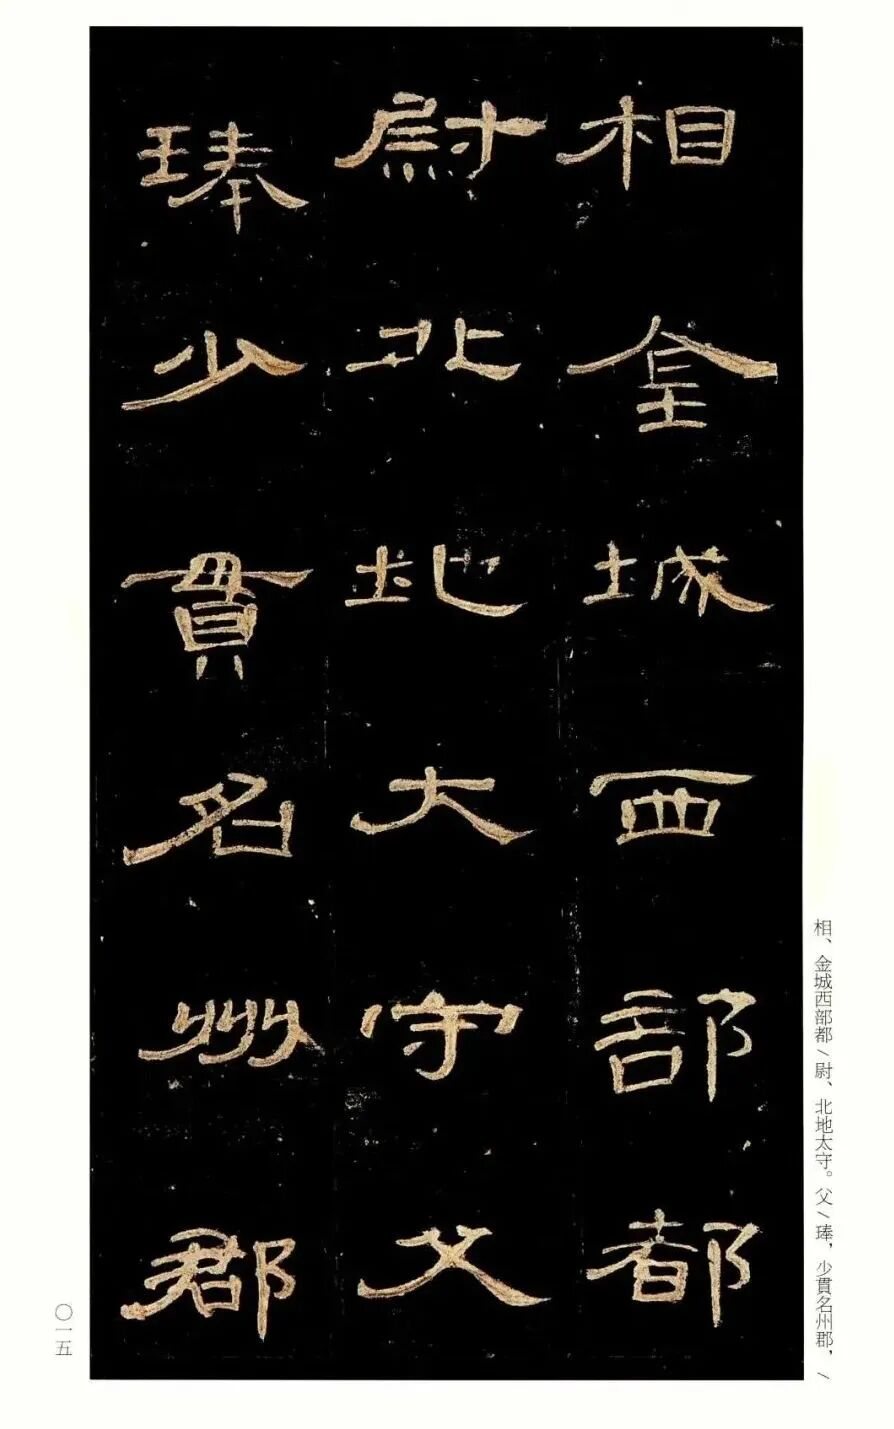 相金城西部都
尉北地大守父
琫少貫名州郡
相、金城西部都/尉、北地太守。父/琫，少貫名州郡，/
〇一五